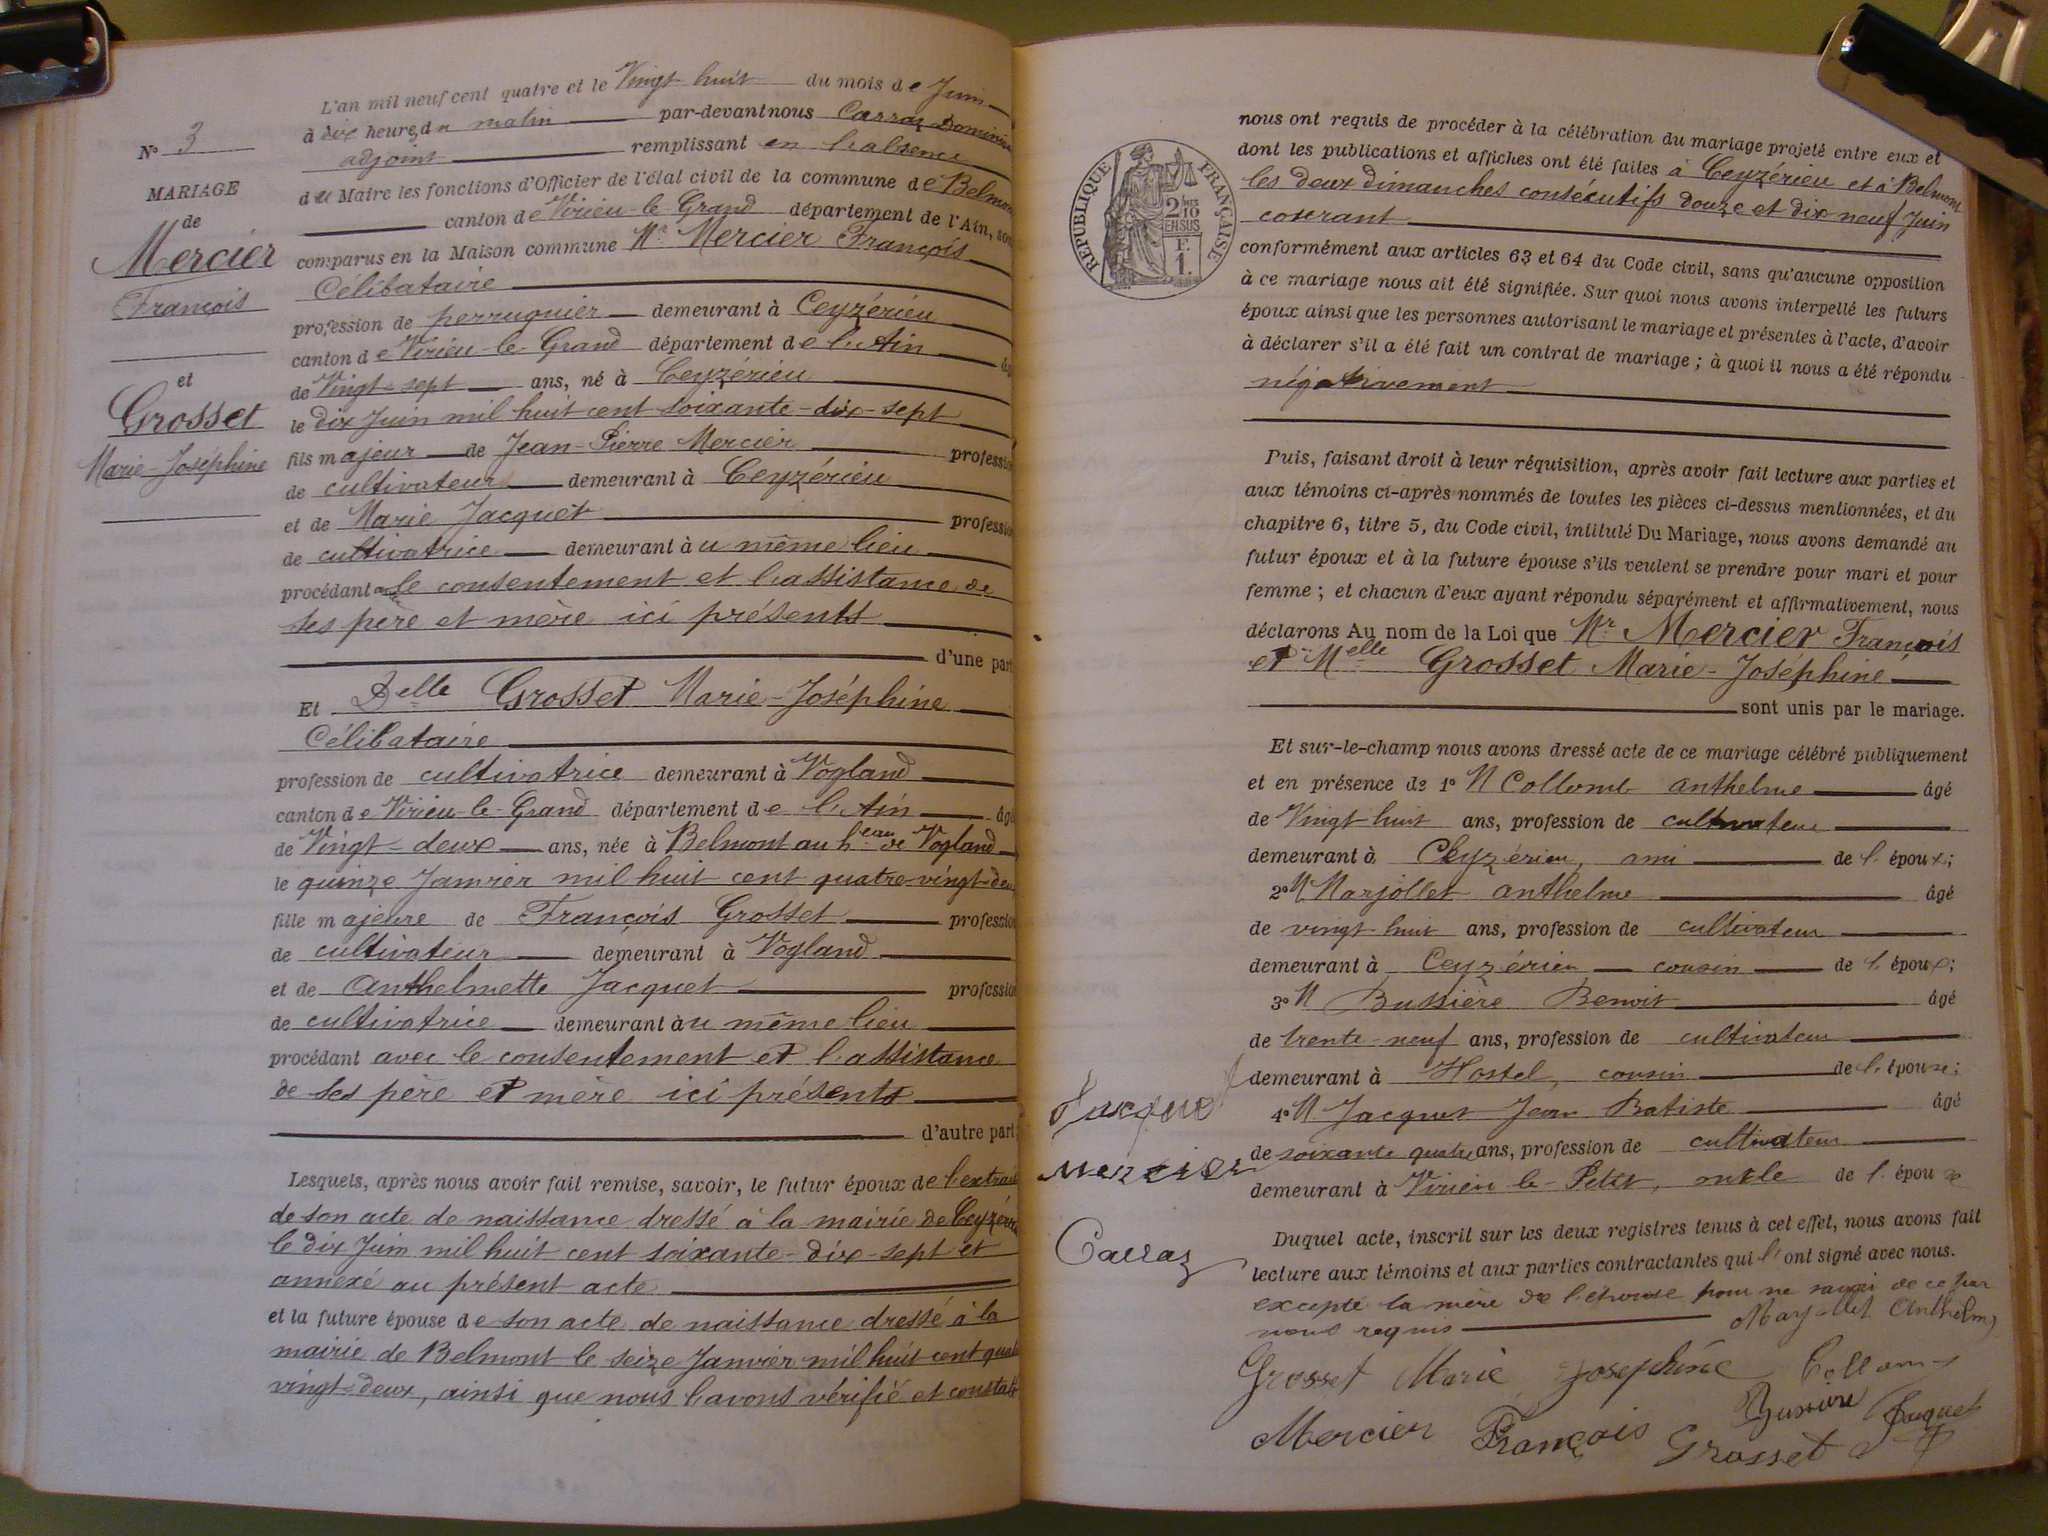 L'an mil neuf cent quatre et le Vingt-huit du mois de Juin
à dix heures du matin par-devant nous Carraz Dominique
adjoint remplissant en l'absence
du Maire les fonctions d'Officier de l'état civil de la commune de Belmont
canton de Virieu-le-Grand département de l'Ain, sont
comparus en la Maison commune Mr Mercier François
Célibataire
profession de perruquier demeurant à Ceyzérieu
canton de Virieu-le-Grand département de l'Ain âgé
de Vingt-sept ans, né à Ceyzérieu
le dix Juin mil huit cent soixante-dix-sept
fils majeur de Jean-Pierre Mercier profession
de cultivateur demeurant à Ceyzérieu
et de Marie Jacquet profession
de cultivatrice demeurant au même lieu
procédant avec le consentement et l'assistance de
ses père et mère ici présents
d'une part
Et Delle Grosset Marie-Joséphine
Célibataire
profession de cultivatrice demeurant à Vogland
canton de Virieu-le-Grand département de l'Ain âgé
de Vingt-deux ans, née à Belmont au heau de Vogland
le quinze Janvier mil huit cent quatre-vingt-deux
fille majeure de François Grosset profession
de cultivateur demeurant à Vogland
et de Anthelmette Jacquet profession
de cultivatrice demeurant au même lieu
procédant avec le consentement et l'assistance
de ses père et mère ici présents
d'autre part;
Lesquels, après nous avoir fait remise, savoir, le futur époux de l'extrait
de son acte de naissance dressé à la mairie de Ceyzérieu
le dix Juin mil huit cent soixante-dix-sept et
annexé au présent acte
et la future épouse de son acte de naissance dressé à la
mairie de Belmont le seize Janvier mil huit cent quatre
vingt-deux, ainsi que nous l'avons vérifié et constaté
No 3
MARIAGE
de
Mercier
François
et
Grosset
Marie-Joséphine
nous ont requis de procéder à la célébration du mariage projeté entre eux et
dont les publications et affiches ont été faites à Ceyzérieu et à Belmont
les deux dimanches consécutifs douze et dix neuf Juin
courant
conformément aux articles 63 et 64 du Code civil, sans qu'aucune opposition
à ce mariage nous ait été signifiée. Sur quoi nous avons interpellé les futurs
époux ainsi que les personnes autorisant le mariage et présentes à l'acte, d'avoir
à déclarer s'il a été fait un contrat de mariage; à quoi il nous a été répondu
négativement
Puis, faisant droit à leur réquisition, après avoir fait lecture aux parties et
aux témoins ci-après nommés de toutes les pièces ci-dessus mentionnées, et du
chapitre 6, titre 5, du Code civil, intitulé Du Mariage, nous avons demandé au
futur époux et à la future épouse s'ils veulent se prendre pour mari et pour
femme; et chacun d'eux ayant répondu séparément et affirmativement, nous
déclarons Au nom de la Loi que Mr Mercier François
et Melle Grosset Marie-Joséphine
sont unis par le mariage.
Et sur-le-champ nous avons dressé acte de ce mariage célébré publiquement
et en présence de 1o M Collomb anthelme âgé
de Vingt huit ans, profession de cultivateur
demeurant à Ceyzérieu, ami de l'époux;
2o M Marjollet anthelme âgé
de vingt-huit ans, profession de cultivateur
demeurant à Ceyzérieu cousin de l'époux;
3o M Bussière Benoit âgé
de trente-neuf ans, profession de cultivateur
demeurant à Hostel, cousin de l'époux;
4o M Jacquet Jean Batiste âgé
de soixante quatre ans, profession de cultivateur
demeurant à Virieu le-Petit, oncle de l'époux
Duquel acte, inscrit sur les deux registres tenus à cet effet, nous avons fait
lecture aux témoins et aux parties contractantes qui l'ont signé avec nous.
excepté la mère de l'épouse pour ne savoir de ce par
nous requis Marjollet Anthelme
Grosset Marie Josephine Collomb
Mercier François Bussière Jacquet
Grosset
Jacquet
Mercier
Carraz
RÉPUBLIQUE FRANÇAISE
2 10 EN SUS
F. 1.